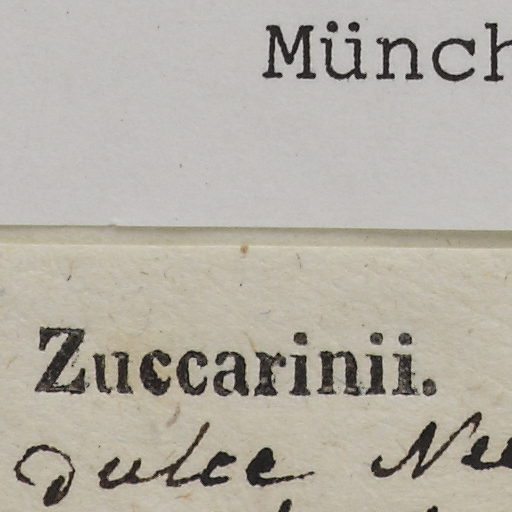 Münch
Zuccarinii.
dulce Nee